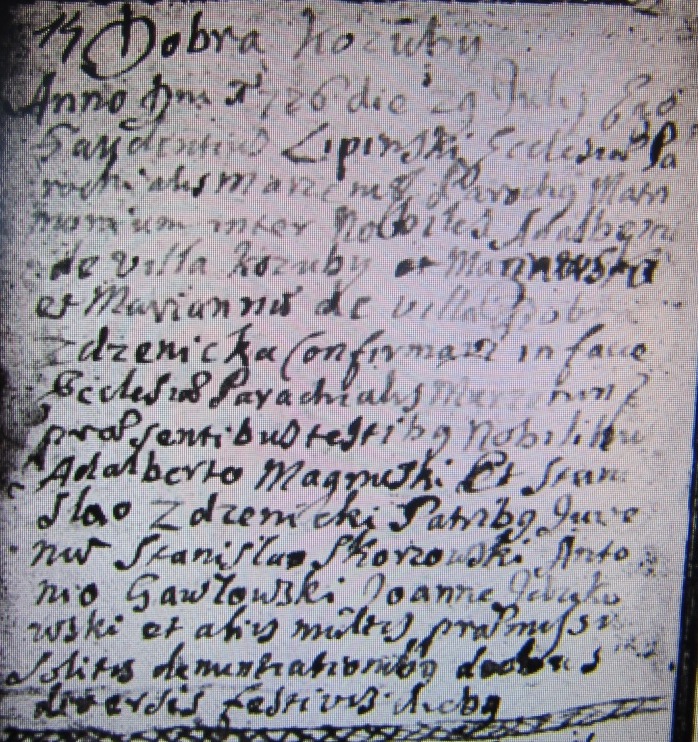 14 Dobra Kozuby
Anno Dni 1726 die 29 Julij Ego
Gaudentius Lipinski Ecclesiæ Pa
rochialis Parochq Matri
monium inter Nobiles Adalbertu
de villa Kozuby et
et Mariannã de villa Dobra
Zdzenicka Confirmavi in facie
Ecclesiæ Parachialis
præsentibus testibq Nobilibu
Adalberto Magnuski Et Stani
slao Zdzenicki Patribq Juve
nu Stanislao Skorzowski Anto
nio Gawłowski Joanne
wski et alijs multis præmissi
solitis denuntiationibq
diversis festivis diebq